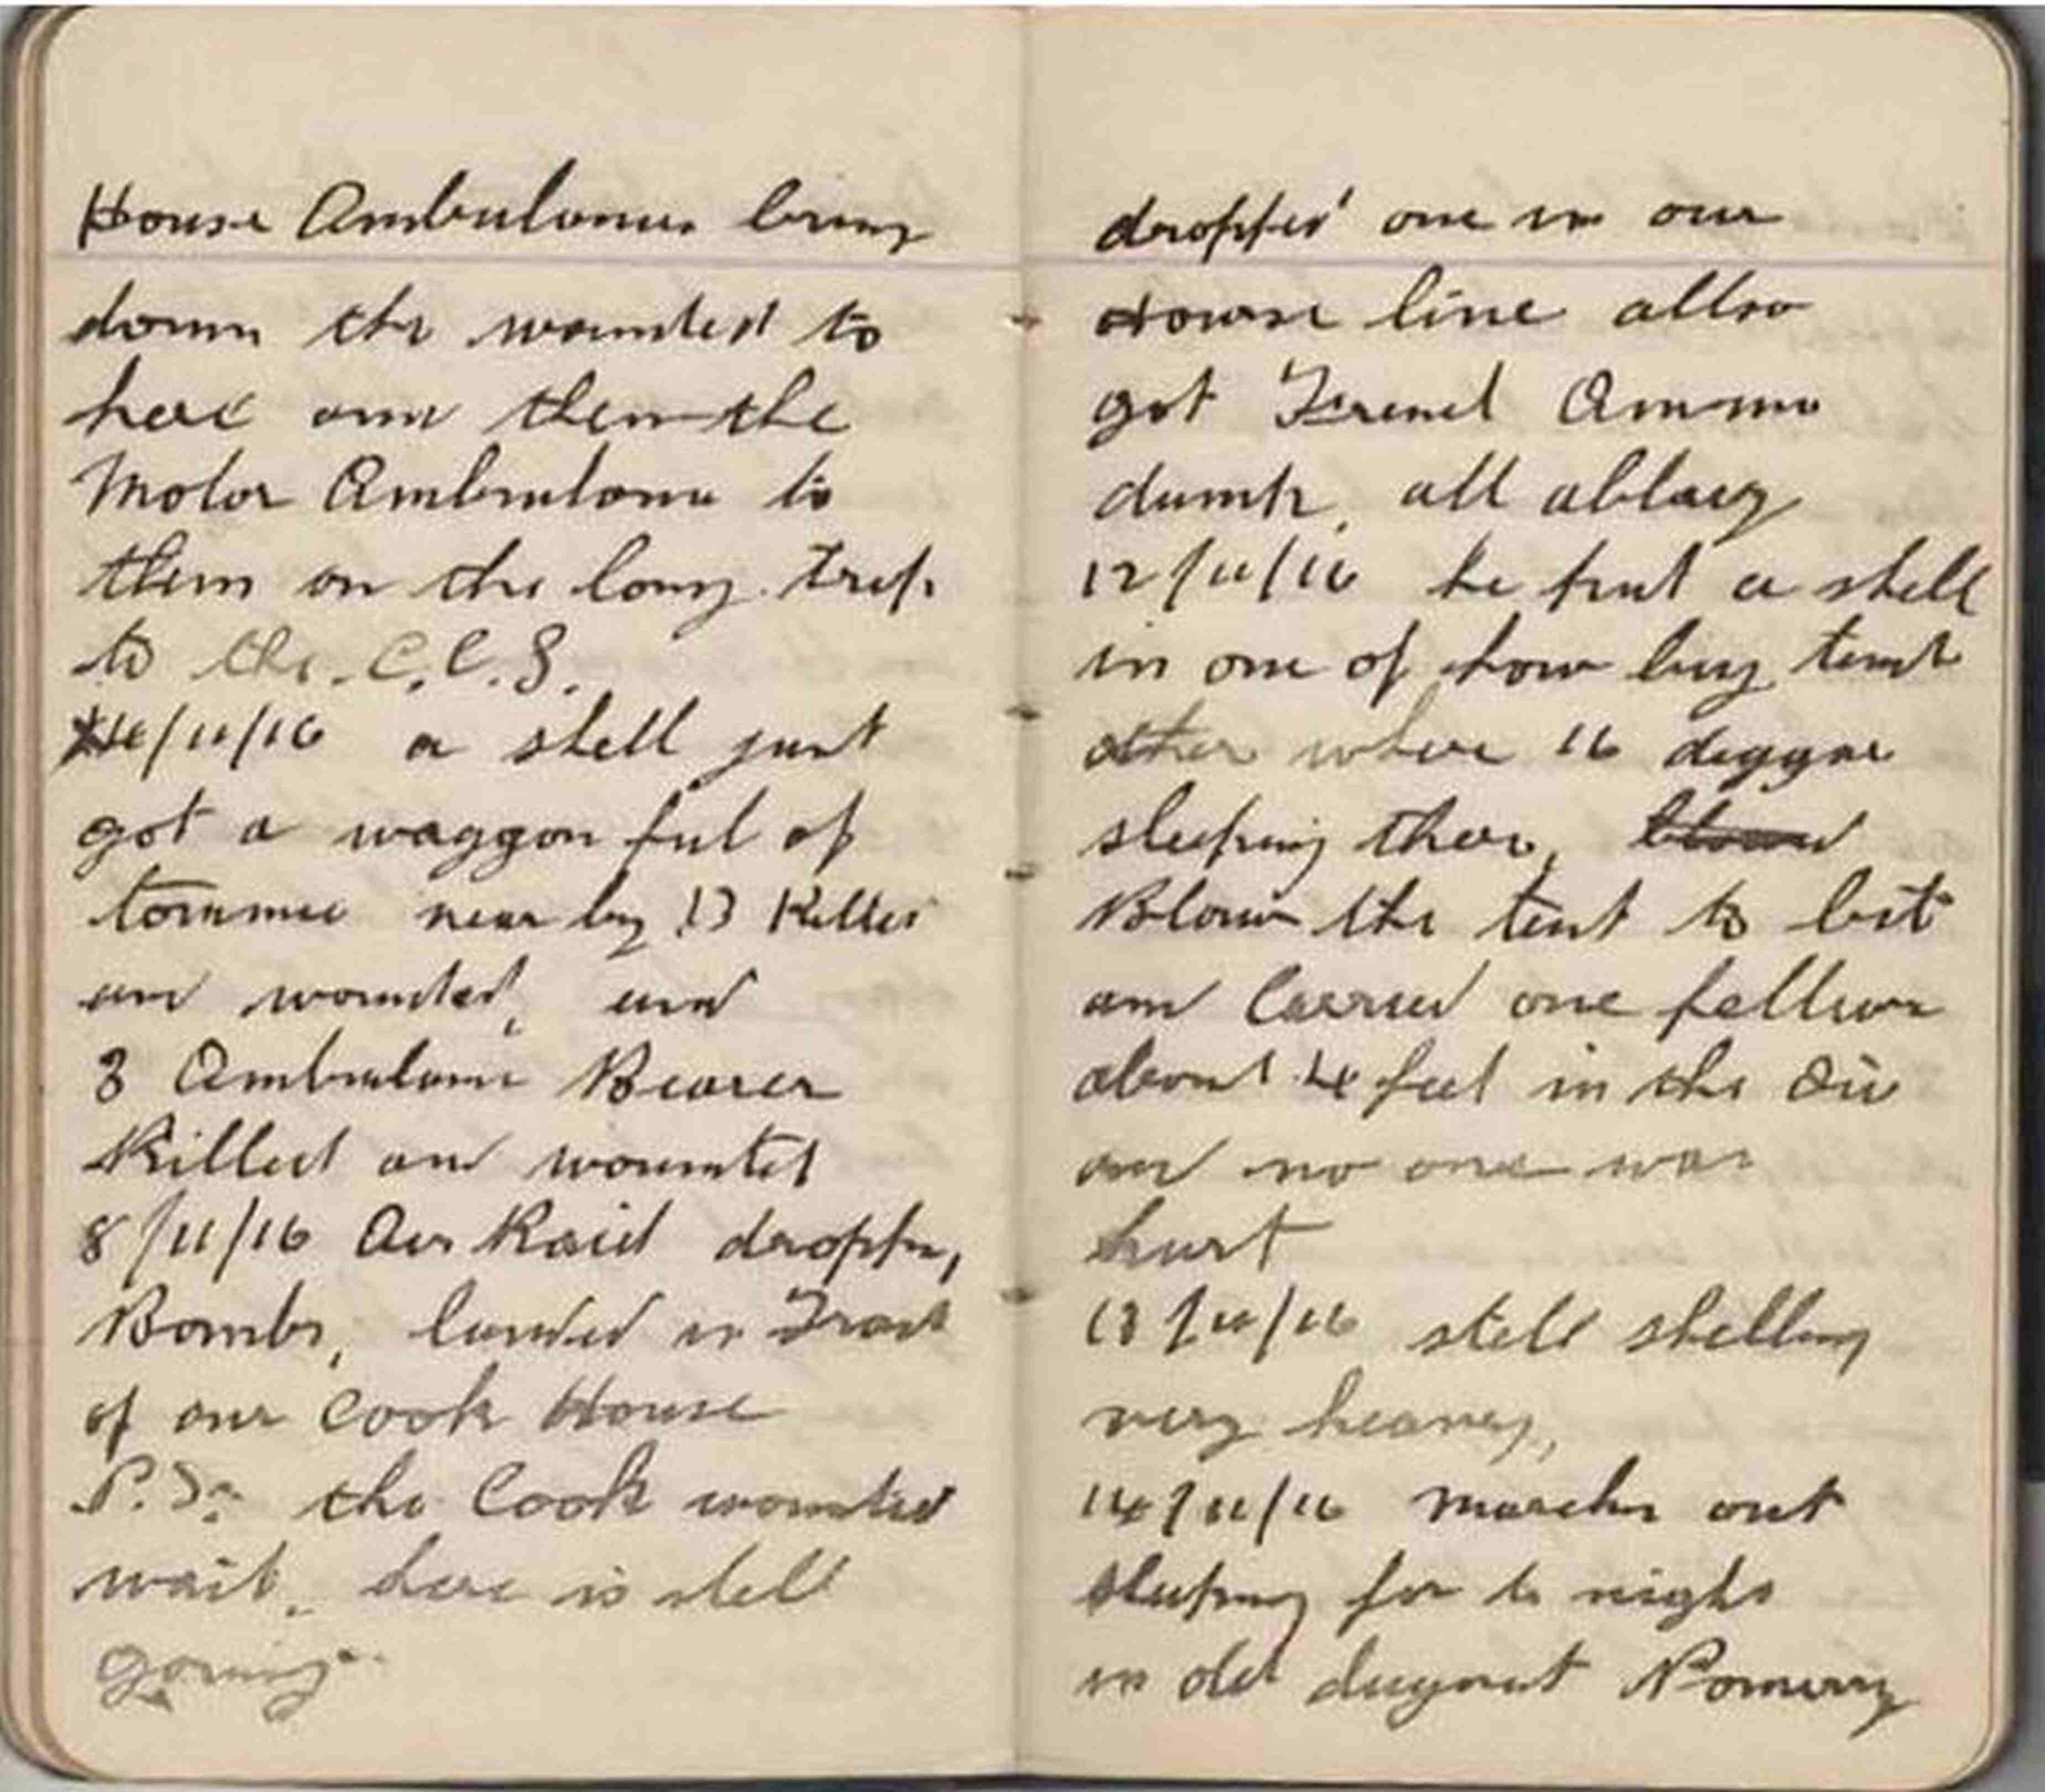 House Ambulances bring
down the wounded to
here and then the
Motor Ambulance to
them on the long trip
to the C.C.S.
4/11/16 a shell just
got a waggon ful of
tommie near by 13 Killed
and wounded, and
3 Ambulance Bearer
Killed and wounded
8/11/16 Air Raid droppen,
Bombs, landed in Front
of our Cook House
P.S. the Cook wounded
wait. here is stell
going
dropped one in our
Hourse line allso
got Frend Ammo
dump, all ablazy
12/11/16 he put a shell
in one of how big tent
other where 16 digger
sleeping ther,
Blown the tent to bit
and Carried one fellow
about 4 feet in the Air
and no one was
hurt
13/11/16 stell shelling
very heavey,
14/11/16 Marchn out
sleeping for to night
in old dugout Pomerry